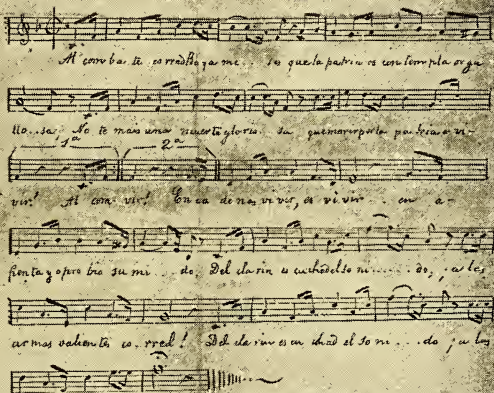 Al comba te corred Bayame . . ses que la patria os contempla orgu
llo . . sa No te mais una muerte glorio . sa que morir por la patria es vi-
1ª 2ª
vir! Al com vir! En ca denas vivir, es vivir . . en a-
frenta y opro bio su mi . . do Del cla rin es cuchad el so ni . . . . . do, ; a las
armas valientes co . rred! Del cla rin es cu chad el so ni . . . do ; a las